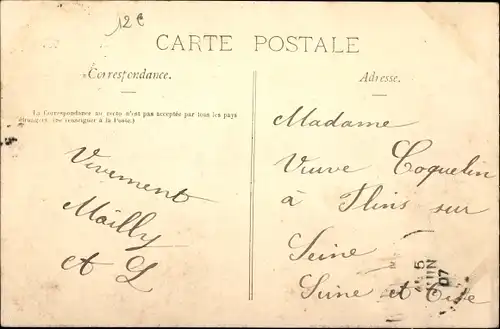 12€
CARTE POSTALE
Correspondance.
Adresse.
La Correspondance au recto n'est pas acceptée par tous les pays
étrangers. (Se renseigner à la Poste.)
Vivement
Mailly
A L
Madame
Veuve Coquelin
à Flins sur
Seine
Seine et Oise
5
JUIN
07